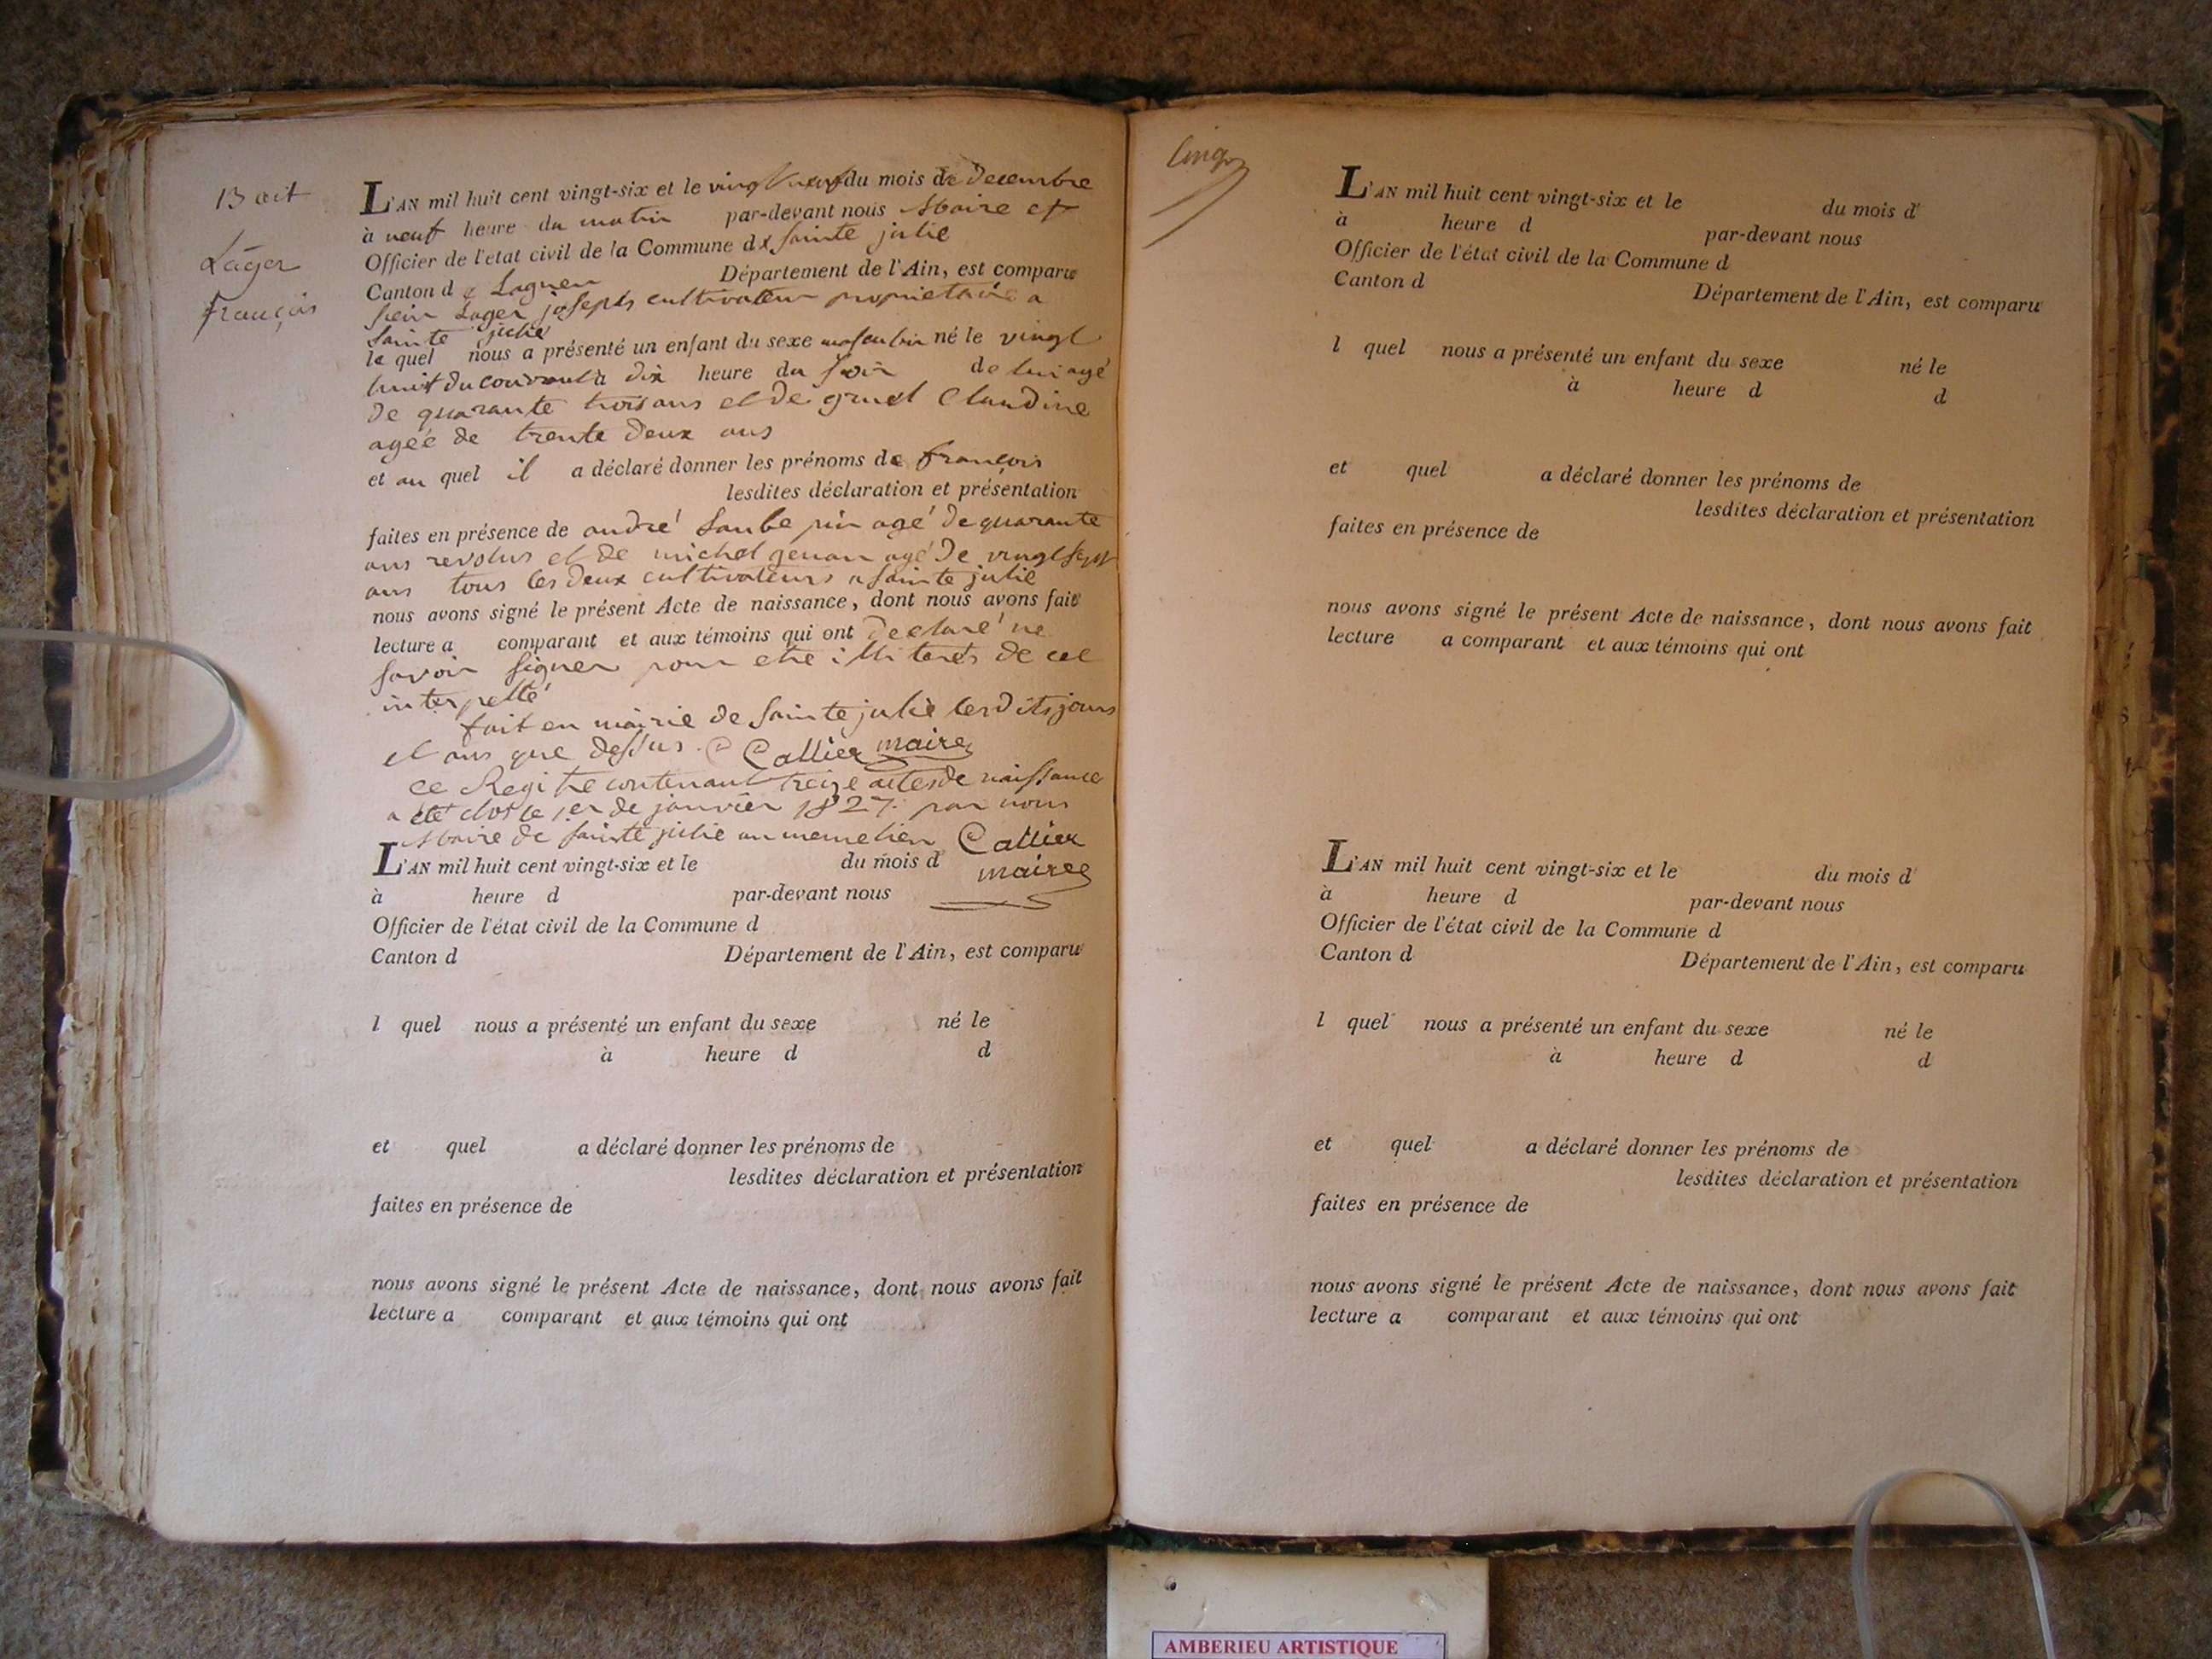 13 act
Lager
françois
L'AN mil huit cent vingt-six et le vingt neuf du mois de decembre
à neuf heure du matin par-devant nous Maire et
Officier de l'etat civil de la Commune de Sainte julie
Canton de Lagneu Département de l'Ain, est comparu
sieur Lager joseph cultivateur proprietaire a
Sainte julie
le quel nous a présenté un enfant du sexe masculin né le vingt
huit du courant à dix heure du soir de lui agé
de quarante trois ans et de gruel Claudine
ageé de trente deux ans
et au quel il a déclaré donner les prénoms de françois
lesdites déclaration et présentation
faites en présence de andré agé de quarante
ans revolus et de michel agé de vingt sept
ans tous les deux cultivateurs a Sainte julie
nous avons signé le présent Acte de naissance, dont nous avons fait
lecture a comparant et aux témoins qui ont declaré ne
savoir signer pour etre illiterés de ce
interpellé
fait en mairie de Sainte julie lesdits jours
et ans que dessus. Callier maire
ce Registre contenant treize actes de naissance
a été clos le 1er de janvier 1827. par nous
Maire de Sainte julie au meme lieu Callier
maire
L'AN mil huit cent vingt-six et le du mois d
à heure d par-devant nous
Officier de l'état civil de la Commune d
Canton d Département de l'Ain, est comparu
l quel nous a présenté un enfant du sexe né le
à heure d d
et quel a déclaré donner les prénoms de
lesdites déclaration et présentation
faites en présence de
nous avons signé le présent Acte de naissance, dont nous avons fait
lecture a comparant et aux témoins qui ont
L'AN mil huit cent vingt-six et le du mois d
à heure d par-devant nous
Officier de l'état civil de la Commune d
Canton d Département de l'Ain, est comparu
l quel nous a présenté un enfant du sexe né le
à heure d d
et quel a déclaré donner les prénoms de
lesdites déclaration et présentation
faites en présence de
nous avons signé le présent Acte de naissance, dont nous avons fait
lecture a comparant et aux témoins qui ont
L'AN mil huit cent vingt-six et le du mois d
à heure d par-devant nous
Officier de l'état civil de la Commune d
Canton d Département de l'Ain, est comparu
l quel nous a présenté un enfant du sexe né le
à heure d d
et quel a déclaré donner les prénoms de
lesdites déclaration et présentation
faites en présence de
nous avons signé le présent Acte de naissance, dont nous avons fait
lecture a comparant et aux témoins qui ont
AMBERIEU ARTISTIQUE